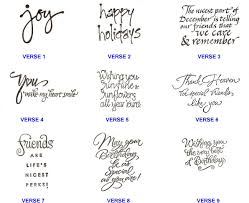 joy
VERSE 1
happy
holidays
VERSE 2
The nicest part of
December is telling
our friends that
we care
& remember
VERSE 3
You
make my heart smile!
VERSE 4
Wishing you
Sunshine &
rainbows
all year thru
VERSE 5
Thank Heaven
for special friends
like you
VERSE 6
friends
ARE
LIFE'S
NICEST
PERKS!
VERSE 7
May your
Birthday
be as
Special
as you are!
VERSE 8
Wishing you
the very best
of Birthdays
VERSE 9